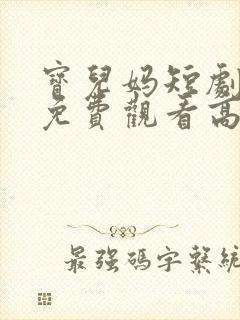 寶兒媽短劇
免費觀看高
最強碼字系統